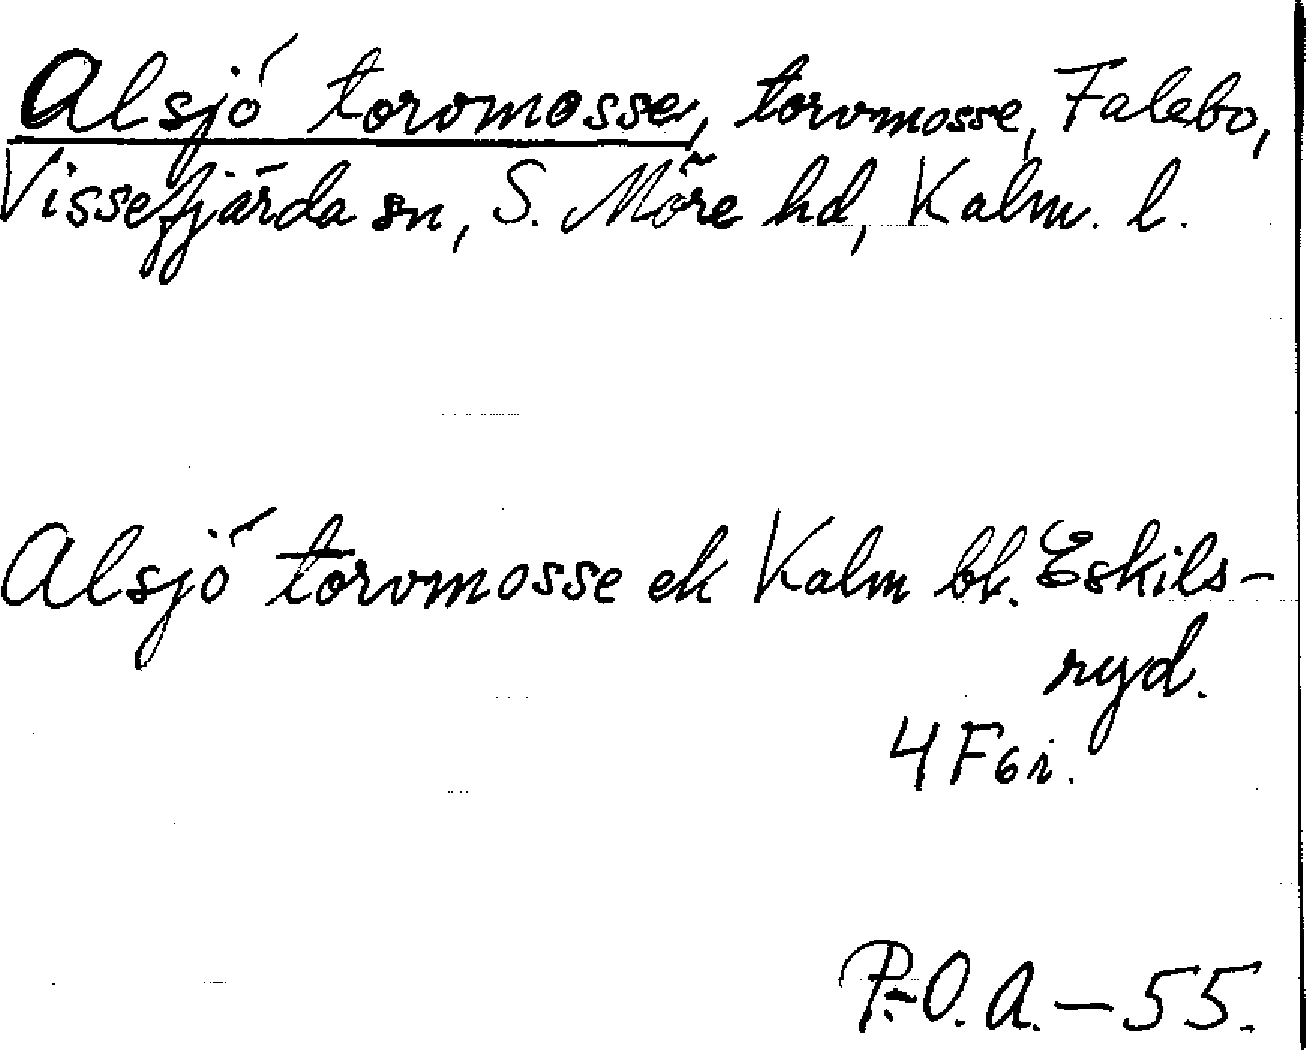 Alsjö torvmosse, torvmosse, Falebo,
Vissefjärda sn, S. Möre hd, Kalm. l.
Alsjö torvmosse ek Kalm bl. Eskils-
ryd.
4 F 6 i.
P.-O. A. - 55.